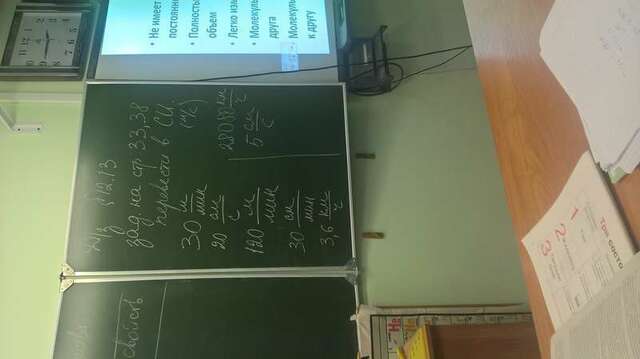 свойств
Д/з § 12,13
зад. на стр 33,38
перевести в СИ.
(м/с)
30 м/мин
20 см/с
120 м/мин
30 см/мин
3,6 км/ч
28080 км/ч
5 см/с
Не имеет
постоянно
Полность
объем
Легко изм
Молекуль
друга
Молекуль
к другу
3
2
1